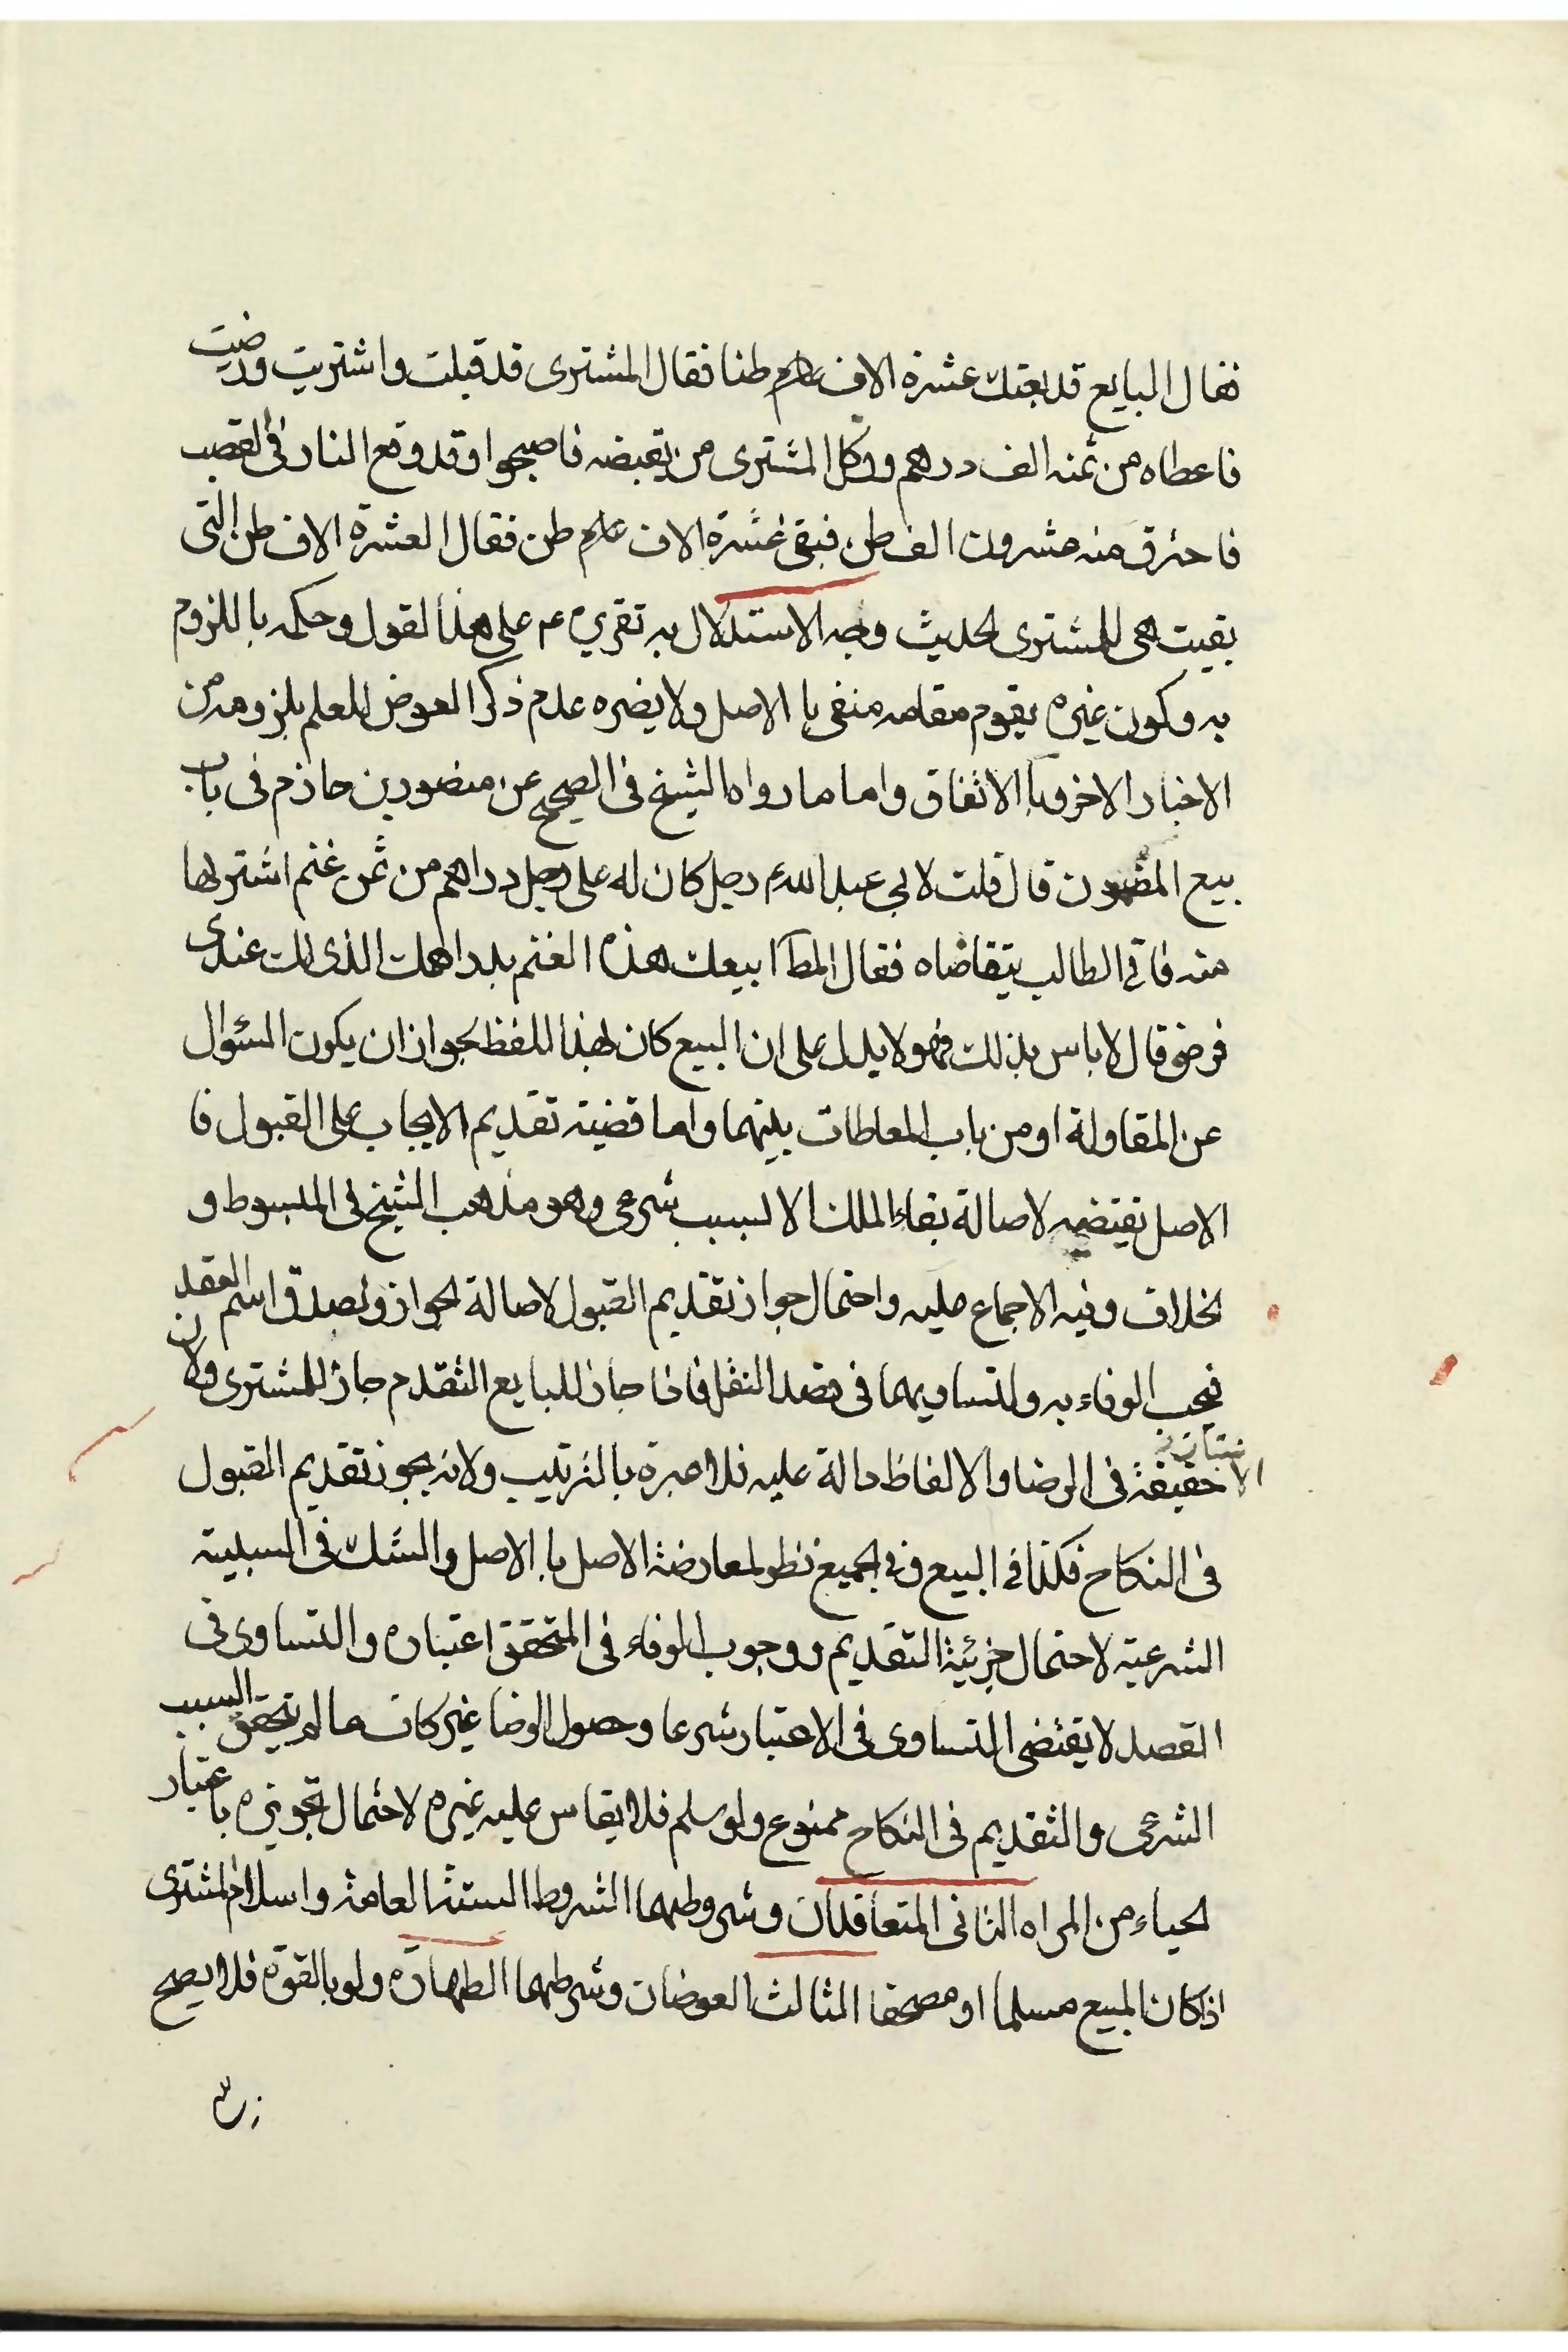 فقال البايع قد بعتك عشرة الاف طنا فقال المشترى قد قبلت واشتريت ورضيت
فاعطاه من ثمنه الف درهم ووكل المشترى من يقبضه فاصبحوا وقد وقع النار فى القصب
فاحترق منه عشرون الف طن فبقى عشرة الاف طن فقال العشرة الاف طن التى
بقيت هى للمشترى الحديث وجه الاستدلال به تقريره ع على هذا القول وحكمه باللزوم
به وكون غيره يقوم مقامه منفى با الاصل ولا يضره عدم ذكر العوض للعلم بلزومه من
الاخبار الاخر وبا الاتفاق واما ما رواه الشيخ فى الصحيح عن منصور بن حازم فى باب
بيع المضمون قال قلت لابى عبد الله ع رجل كان له على رجل دراهم من ثمن غنم اشتريها
منه فاتى الطالب يتقاضاه فقال المط ابيعك هذه الغنم بدراهمك الذى لك عندى
فرضى قال لا باس بذلك فهو لا يدل على ان البيع كان بهذا اللفظ لجواز ان يكون السئوال
عن المقاولة او من باب المعاطات بينهما واما قضية تقديم الايجاب على القبول فا
الاصل تقتضيه لاصالة بقاء الملك الا لسبب شرعى وهو مذهب الشيخ فى المبسوط و
الخلاف وفيه الاجماع عليه واحتمال جواز تقديم القبول لاصالة الجواز ولصدق اسم العقد
فيجب الوفاء به ولتساويهما فى قصد النقل فاذا جاز للبايع التقدم جاز للمشترى ولان
الا حقيقة فى الرضا والالفاظ دالة عليه فلا عبرة بالترتيب ولانه يجوز تقديم القبول
فى النكاح فكذا فى البيع وفى الجميع نظر لمعارضة الاصل با الاصل والشك فى السببية
الشرعية لاحتمال جزئية التقديم ووجوب الوفاء فى المتحقق اعتباره والتساوى فى
القصد لا يقتضى التساوى فى الاعتبار شرعا وحصول الرضا غير كاف ما لم يتحقق السبب
الشرعى والتقديم فى النكاح ممنوع ولو سلم فلا يقاس عليه غيره لاحتمال تجويزه باعتبار
الحياء من المراه الثانى المتعاقدان وشروطهما الشروط الستة العامة واسلام المشترى
اذ كان المبيع مسلما او مصحفا الثالث العوضان وشرطهما الطهارة ولو بالقوة فلا يصح